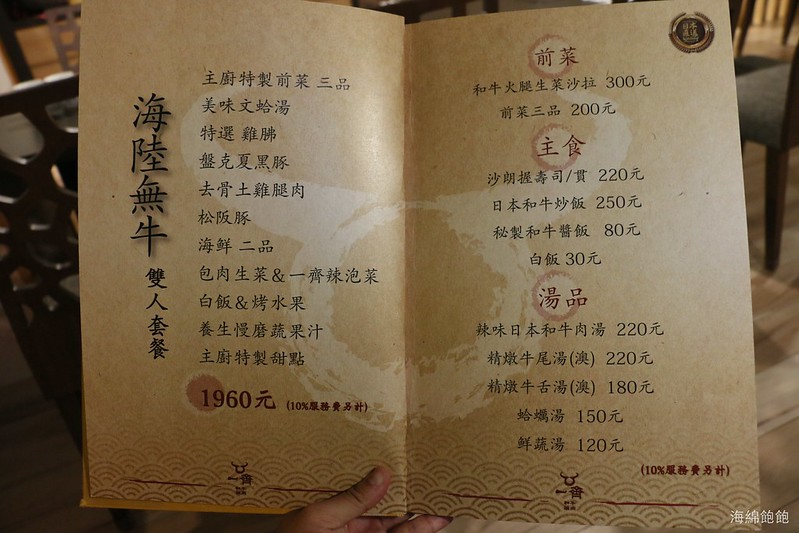 海陸無牛
雙人套餐
主廚特製前菜 三品
美味文蛤湯
特選 雞胇
盤克夏黑豚
去骨土雞腿肉
松阪豚
海鮮 二品
包肉生菜&一齊辣泡菜
白飯&烤水果
養生慢磨蔬果汁
主廚特製甜點
1960元 (10%服務費另計)
一齊
前菜
和牛火腿生菜沙拉 300元
前菜三品 200元
主食
沙朗握壽司/貫 220元
日本和牛炒飯 250元
秘製和牛醬飯 80元
白飯 30元
湯品
辣味日本和牛肉湯 220元
精燉牛尾湯(澳) 220元
精燉牛舌湯(澳) 180元
蛤蠣湯 150元
鮮蔬湯 120元
(10%服務費另計)
一齊
海綿飽飽